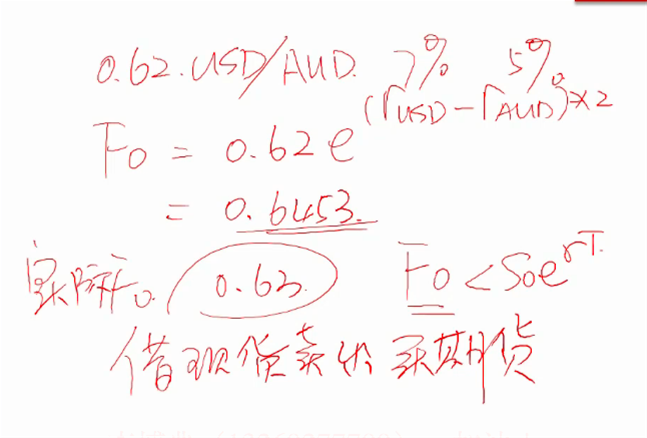 0.62 USD/AUD. 7% 5%
F0 = 0.62 e^(rUSD - rAUD)×2
= 0.6453.
实际F0. 0.63. F0 < S0e^rT.
借现货卖出 买期货